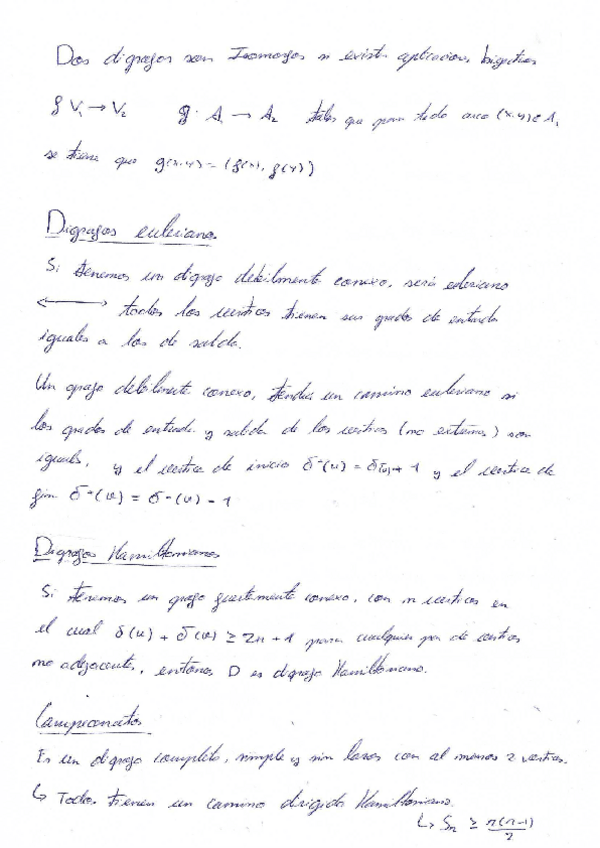 Dos digrafos son Isomorfos si existen aplicaciones biyectivas
f V₁ → V₂ g: A₁ → A₂ tales que para todo arco (x,y) ∈ A₁
se tiene que g(x,y) = (f(x), f(y))
Digrafos euleriano
Si tenemos un digrafo debilmente conexo, será euleriano
⟷ todos los vertices tienen sus grados de entrada
iguales a los de salida.
Un grafo debilmente conexo, tendra un camino euleriano si
los grados de entrada y salida de los vertices (no extremos) son
iguales, y el vertice de inicio δ⁺(u) = δ(u) + 1 y el vertice de
fin δ⁺(v) = δ⁻(v) - 1
Digrafos Hamiltonianos
Si tenemos un grafo fuertemente conexo, con n vertices en
el cual δ(u) + δ(v) ≥ 2n + 1 para cualquier par de vertices
no adyacentes, entonces D es digrafo Hamiltoniano.
Campeonatos
Es un digrafo completo, simple y sin lazos con al menos 2 vertices.
↳ Todos tienen un camino dirigido Hamiltoniano.
↳ Sₙ ≥ n(n-1)/2